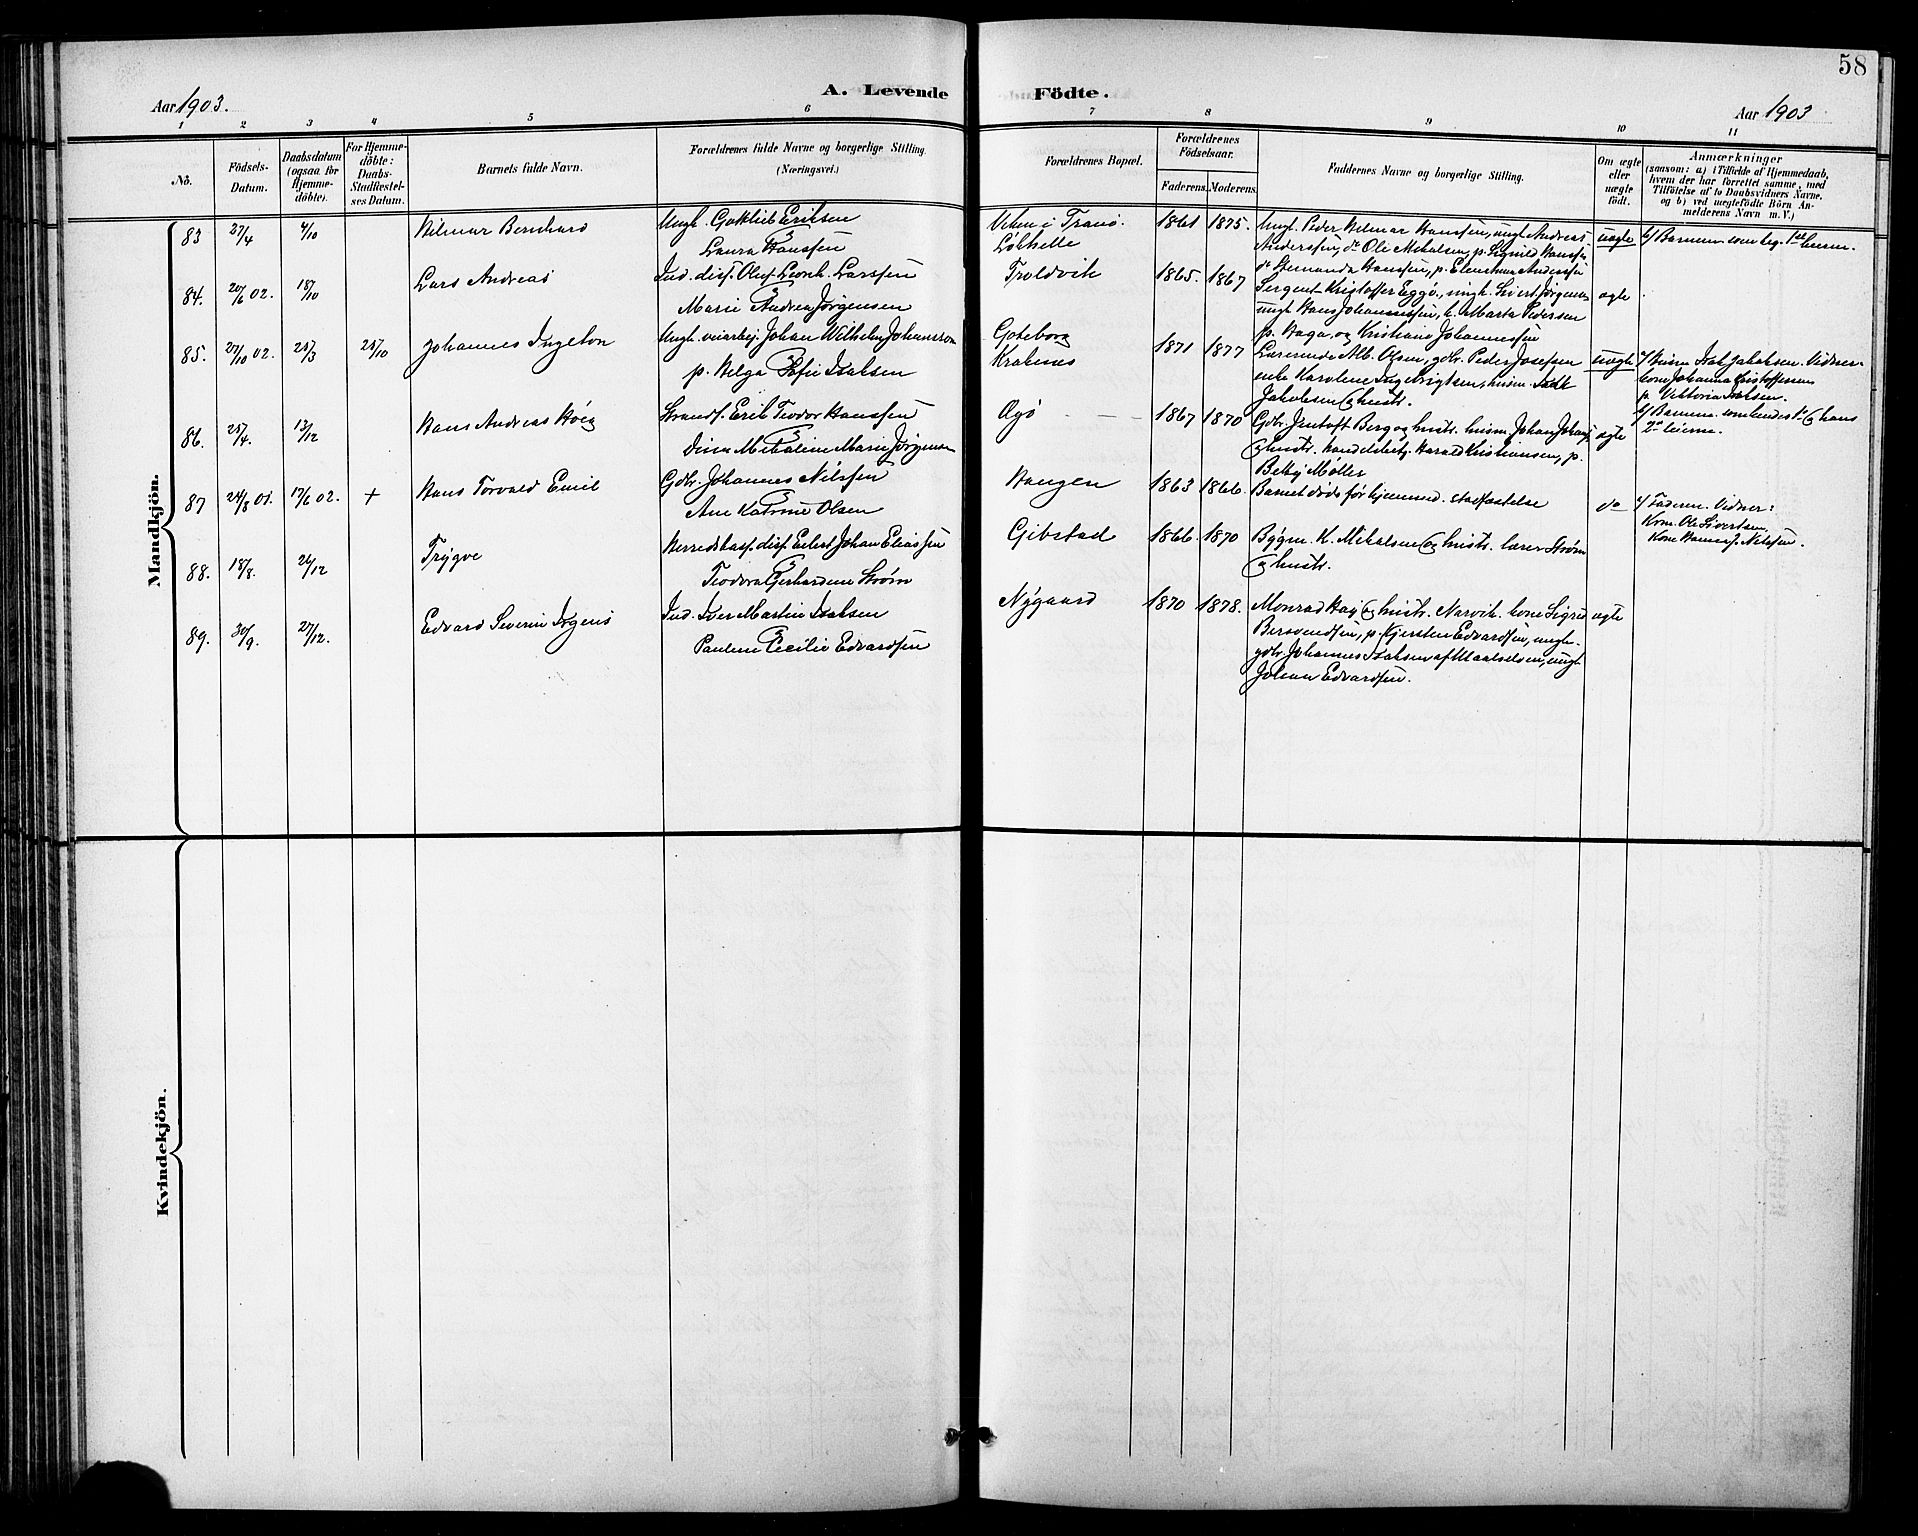 58
Aar 1903.
A. Levende
Födte.
Aar 1903
1 2 3 4 5 6 7 8 9 10 11
No.
Födsels-
Datum.
Daabsdatum
(ogsaa for
Hjemme-
döbte).
For Hjemme-
döbte:
Daabs-
Stadfæstel-
ses Datum.
Barnets fulde Navn.
Forældrenes fulde Navne og borgerlige Stilling.
(Næringsvei.)
Forældrenes Bopæl.
Forældrenes
Födselsaar.
Faderens.
Moderens.
Faddernes Navne og borgerlige Stilling.
Om ægte
eller
uægte
födt.
Anmærkninger
(saasom: a) i Tilfælde af Hjemmedaab,
hvem der har forrettet samme, med
Tilföielse af to Daabsvidners Navne,
og b) ved uægtefödte Börn An-
melderens Navn m. V.)
Mandkjön.
83 27/4 4/10 Hilmar Bernhard
Ungk. Gottlieb Eriksen
Laura Hanssen
Veken i Tranø.
Løkhelle
1861 1875.
Ungk. Peder Hilmar Hanssen, ungk. Andreas
Anderssen, do Ole Mikalsen, p. Signild Hanssen
do Hernanda Hanssen, p. Anderssen
uægte
b/ Barnem. som beg. 1ste leierm.
84. 20/6 02. 18/10 Lars Andreas
Ind. disf. Oluf Leonh. Larssen
Marie Andrea Jørgensen
Troldvik 1865. 1867
Sergent Kristoffer Eggø, ungk. Sivert Jørgensen
ungk. Hans Johannessen, k. Marta Pedersen
p. Haga og Kristiane Johannessen
ægte
85. 27/10 02. 25/3 25/10 Johannes Ingeton
Ungk. veiarbej. Johan Wilhelm Johansson
p. Helga Sofie Isaksen
Gøteborg
Kraknes
1871 1877
Lærerinde Alb. Olsen, gdbr. Peder Josefsen
enke Karolene Ingebrigtsen, husm. Isak
Jakobsen & hustr.
uægte
a/ Husm. Isak Jakobsen. Vidner:
kone Johanna Kristoffersen
p. Viktoria Isaksen.
b/ Barnem. som hendes 1ste & hans
2det leierm.
86. 25/4. 13/12 Hans Andreas Høeg
Strandf. Erik Teodor Hanssen
Dina Mikaline Marie Jørgensen
Øyø 1867 1870
Gdbr. Jentoft Berg og hustr. husm. Johan Johans.
& hustr. handelsbetj. Harald Kristiansen, p.
Betsy Møller
ægte
87 24/8 01. 17/6 02. + Hans Torvald Emil
Gdbr. Johannes Nilssen
Ane Katrine Olsen
Haugen 1863 1866.
Barnet døde før hjemmed. stadfæstelse
do
a/ Faderen. Vidner:
Kone Ole Sivertsen,
Kone Hans J. Nilssen.
88. 18/8. 26/12 Trygve
Herredskasf. disf. Eilert Johan Eliassen
Teodora Gerhardine Strøm
Gibstad 1866 1870
Bygm. K. Mikalsen & hustr. lærer Strøm
& hustr.
89. 30/9. 27/12. Edvard Severin Irgens
Ind. Iver Martin Isaksen
Pauline Cecilie Edvardsen
Nygaard 1870 1878.
Monrad Høy & hustr. Narvik. kone Sigrid
Bersvendsen, p. Kjersten Edvardsen, ungk.
gdbr. Johannes Isaksen af Maalselven, ungk.
Johan Edvardsen.
ægte
Kvindekjön.